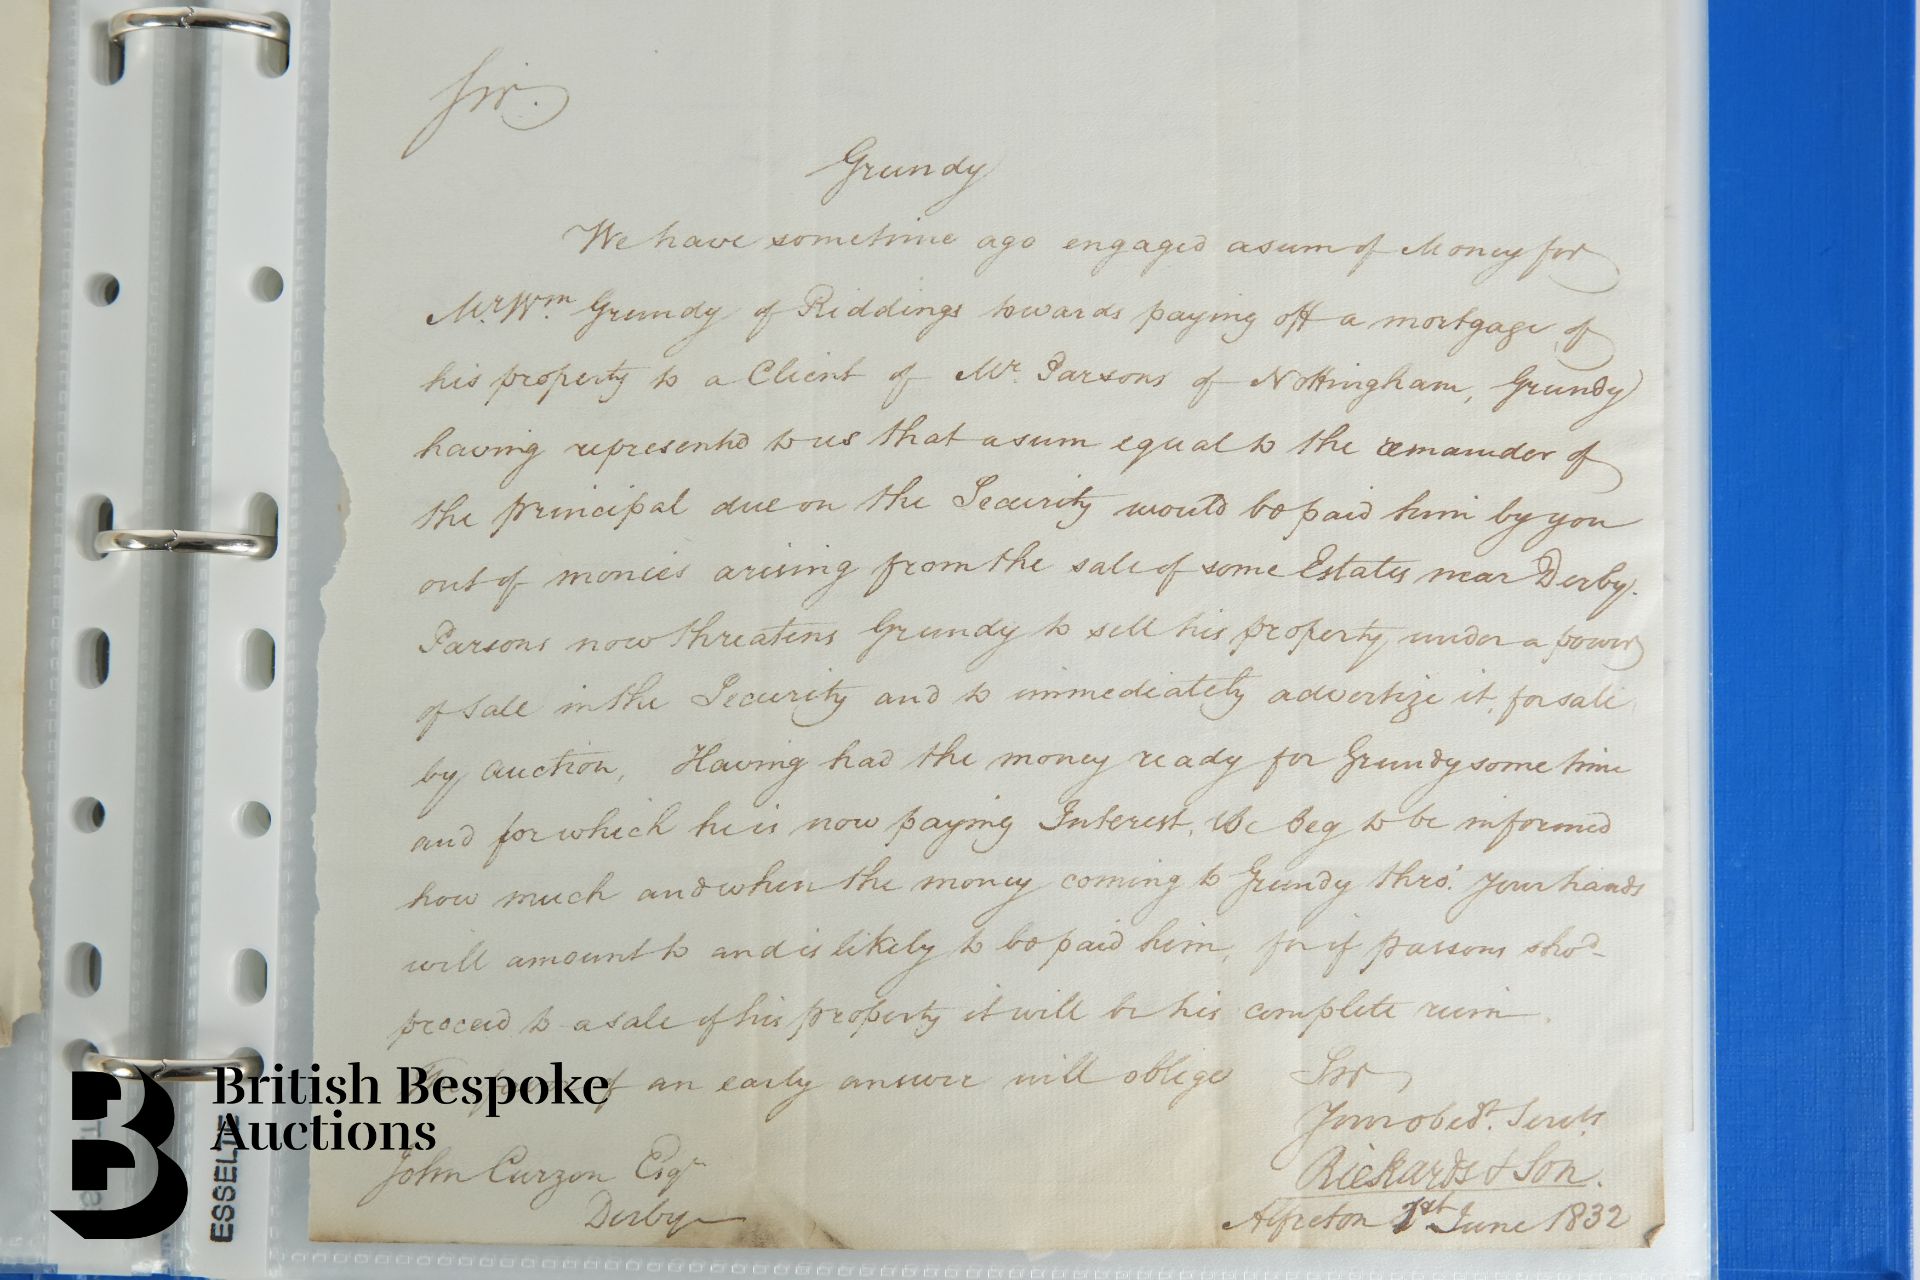 Sir.
Grundy
We have sometime ago engaged a sum of Money for
Mr. Wm. Grundy of Riddings towards paying off a mortgage of
his property to a Client of Mr. Parsons of Nottingham, Grundy
having represented to us that a sum equal to the remainder of
the principal due on the Security would be paid him by you
out of monies arising from the sale of some Estates near Derby.
Parsons now threatens Grundy to sell his property under a power
of sale in the Security and to immediately advertize it for sale
by Auction, Having had the money ready for Grundy some time
and for which he is now paying Interest, We beg to be informed
how much and when the money coming to Grundy thro'. your hands
will amount to and is likely to be paid him, for if parsons shod.
proceed to a sale of his property it will be his complete ruin.
of an early answer will oblige Sir
Your obedt. Servts.
Rickards & Son.
John Curzon Esqr
Derby
Alfreton 1st June 1832
British Bespoke
Auctions
B
ESSELTE